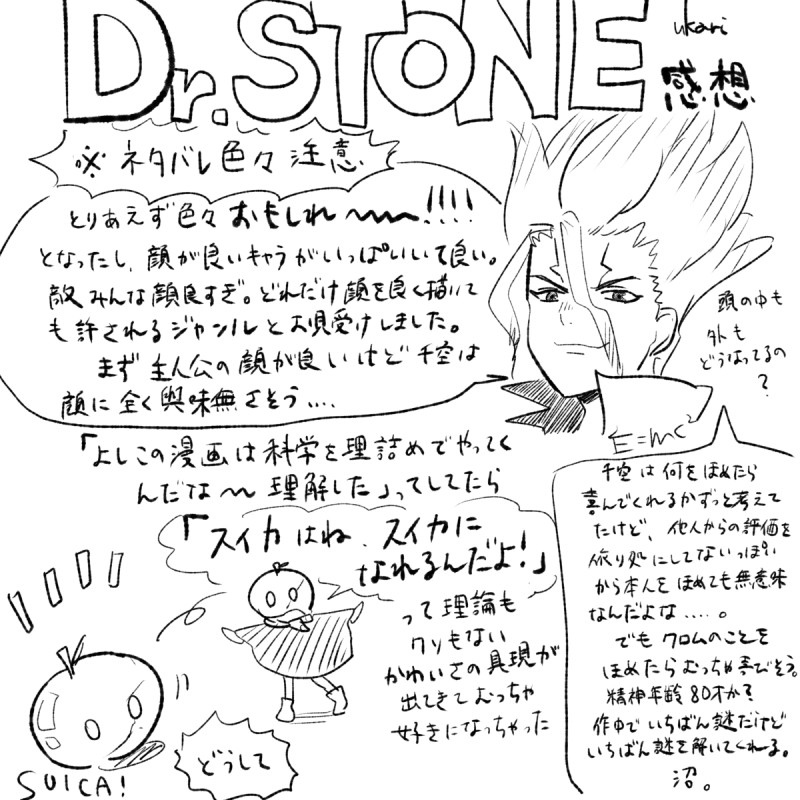 Dr.STONE
ukari
感想
※ネタバレ色々注意
とりあえず色々おもしれ〜〜〜!!!!
となったし、顔が良いキャラがいっぱいいて良い。
敵みんな顔良すぎ。どれだけ顔を良く描いて
も許されるジャンルとお見受けしました。
まず主人公の顔が良いけど千空は
顔に全く興味無さそう....
頭の中も
外も
どうなってるの
?
E=mc²
「よしこの漫画は科学を理詰めでやってく
んだな〜理解した」ってしてたら
「スイカはね、スイカに
なれるんだよ!」
って理論も
クソもない
かわいさの具現が
出てきてむっちゃ
好きになっちゃった
SUICA!
どうして
千空は何をほめたら
喜んでくれるかずっと考えて
たけど、他人からの評価を
依り処にしてないっぽい
から本人をほめても無意味
なんだよな.....。
でもクロムのことを
ほめたらむっちゃ喜びそう。
精神年齢80才か?
作中でいちばん謎だけど
いちばん謎を解いてくれる。
沼。